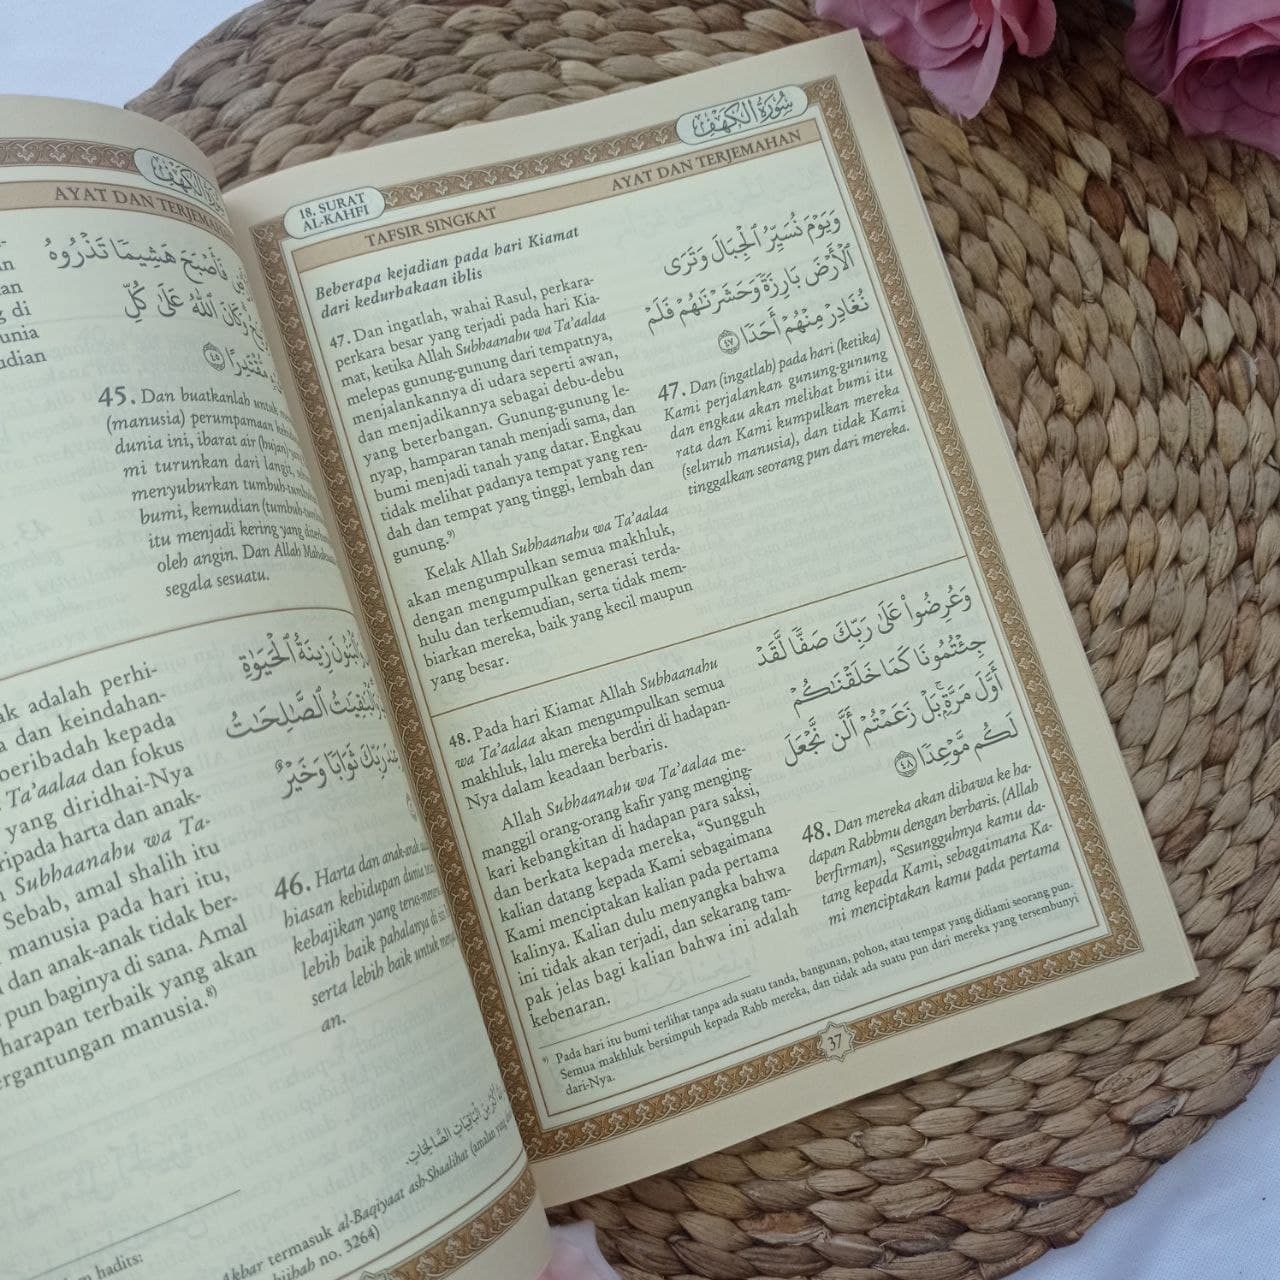 AYAT DAN TERJEMAHAN
فَأَصْبَحَ هَشِيمًا تَذْرُوهُ
وَكَانَ ٱللَّهُ عَلَىٰ كُلِّ
مُّقْتَدِرًا ٤٥
45. Dan buatkanlah untuk
(manusia) perumpamaan
dunia ini, ibarat air (hujan)
mi turunkan dari langit,
menyuburkan tumbuh-tumb
bumi, kemudian (tumbuh-tum
itu menjadi kering yang
oleh angin. Dan Allah
segala sesuatu.
an
kan
g di
unia
udian
زِينَةُ ٱلْحَيَوٰةِ
ٱلصَّٰلِحَٰتُ
رَبِّكَ ثَوَابًا وَخَيْرٌ
46. Harta dan anak-anak
biasan kehidupan dunia
kebajikan yang terus-mene
lebih baik pahalanya di
serta lebih baik untuk
an.
ak adalah perhi-
a dan keindahan-
beribadah kepada
Ta'aalaa dan fokus
yang diridhai-Nya
ripada harta dan anak-
Subhaanahu wa Ta-
Sebab, amal shalih itu
manusia pada hari itu,
dan anak-anak tidak ber-
pun baginya di sana. Amal
harapan terbaik yang akan
ergantungan manusia.⁸⁾
hadits:
الْبَاقِيَاتِ الصَّالِحَاتِ.
Akbar termasuk al-Baqiyaat ash-Shaalihat (amalan
no. 3264)
18. SURAT
AL-KAHFI
سُورَةُ الْكَهْفِ
TAFSIR SINGKAT
AYAT DAN TERJEMAHAN
Beberapa kejadian pada hari Kiamat
dari kedurhakaan iblis
47. Dan ingatlah, wahai Rasul, perkara-
perkara besar yang terjadi pada hari Kia-
mat, ketika Allah Subhaanahu wa Ta'aalaa
melepas gunung-gunung dari tempatnya,
menjalankannya di udara seperti awan,
dan menjadikannya sebagai debu-debu
yang beterbangan. Gunung-gunung le-
nyap, hamparan tanah menjadi sama, dan
bumi menjadi tanah yang datar. Engkau
tidak melihat padanya tempat yang ren-
dah dan tempat yang tinggi, lembah dan
gunung.⁹⁾
Kelak Allah Subhaanahu wa Ta'aalaa
akan mengumpulkan semua makhluk,
dengan mengumpulkan generasi terda-
hulu dan terkemudian, serta tidak mem-
biarkan mereka, baik yang kecil maupun
yang besar.
وَيَوْمَ نُسَيِّرُ ٱلْجِبَالَ وَتَرَى
ٱلْأَرْضَ بَارِزَةً وَحَشَرْنَٰهُمْ فَلَمْ
نُغَادِرْ مِنْهُمْ أَحَدًا ٤٧
47. Dan (ingatlah) pada hari (ketika)
Kami perjalankan gunung-gunung
dan engkau akan melihat bumi itu
rata dan Kami kumpulkan mereka
(seluruh manusia), dan tidak Kami
tinggalkan seorang pun dari mereka.
48. Pada hari Kiamat Allah Subhaanahu
wa Ta'aalaa akan mengumpulkan semua
makhluk, lalu mereka berdiri di hadapan-
Nya dalam keadaan berbaris.
Allah Subhaanahu wa Ta'aalaa me-
manggil orang-orang kafir yang menging-
kari kebangkitan di hadapan para saksi,
dan berkata kepada mereka, "Sungguh
kalian datang kepada Kami sebagaimana
Kami menciptakan kalian pada pertama
kalinya. Kalian dulu menyangka bahwa
ini tidak akan terjadi, dan sekarang tam-
pak jelas bagi kalian bahwa ini adalah
kebenaran.
وَعُرِضُوا۟ عَلَىٰ رَبِّكَ صَفًّا لَّقَدْ
جِئْتُمُونَا كَمَا خَلَقْنَٰكُمْ
أَوَّلَ مَرَّةٍۭ بَلْ زَعَمْتُمْ أَلَّن نَّجْعَلَ
لَكُم مَّوْعِدًا ٤٨
48. Dan mereka akan dibawa ke ha-
dapan Rabbmu dengan berbaris. (Allah
berfirman), "Sesungguhnya kamu da-
tang kepada Kami, sebagaimana Ka-
mi menciptakan kamu pada pertama
⁹⁾ Pada hari itu bumi terlihat tanpa ada suatu tanda, bangunan, pohon, atau tempat yang didiami seorang pun.
Semua makhluk bersimpuh kepada Rabb mereka, dan tidak ada suatu pun dari mereka yang tersembunyi
dari-Nya.
37